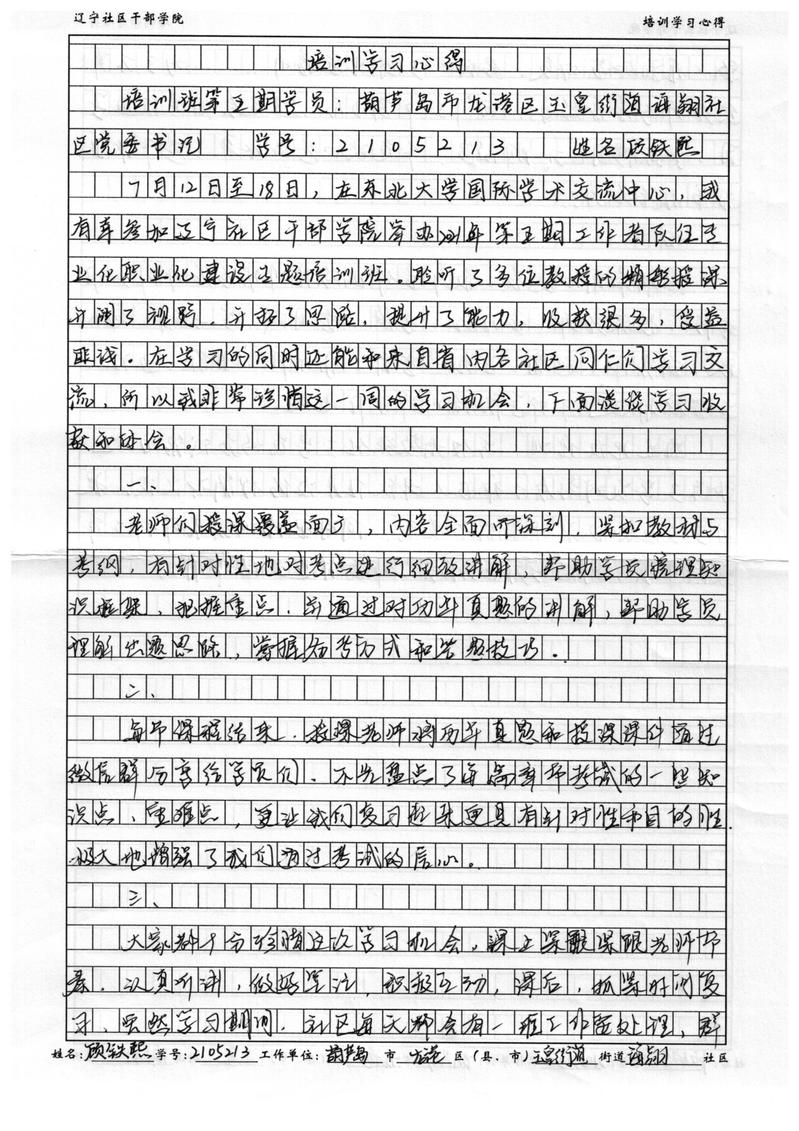 辽宁社区干部学院 培训学习心得
培训学习心得
培训班第五期学员：葫芦岛市龙港区玉皇街道海翔社
区党委书记 学号：2105213 姓名顾铁熙
7月12日至18日，在东北大学国际学术交流中心，我
有幸参加辽宁社区干部学院举办2021年第五期工作者队伍专
业化职业化建设专题培训班。聆听了各位教授的精彩授课，
开阔了视野，开拓了思路，提升了能力，收获很多，受益
匪浅。在学习的同时还能和来自省内各社区同仁们学习交
流，所以我非常珍惜这一周的学习机会，下面谈谈学习收
获和体会。
一、
老师们授课覆盖面广，内容全面而深刻，紧扣教材与
考纲，有针对性地对考点进行细致讲解，帮助学员梳理知
识框架，把握重点，并通过对历年真题的讲解，帮助学员
理解出题思路，掌握备考方式和答题技巧。
二、
每节课程结束，授课老师将历年真题和授课课件通过
微信群分享给学员们，不光盘点了每篇章节考试的一些知
识点、重难点，更让我们复习起来更具有针对性和目的性，
极大地增强了我们通过考试的信心。
三、
大家都十分珍惜这次学习机会，课上紧跟老师节
奏，认真听讲，做好笔注，积极互动，课后，抓紧时间复
习，虽然学习期间，社区每天都会有一堆工作需处理，群
姓名：顾铁熙 学号：2105213 工作单位：葫芦岛 市 龙港 区（县、市）玉皇街道 街道 海翔 社区